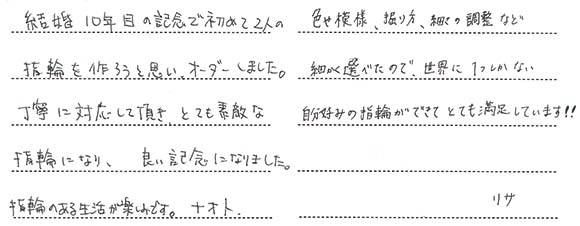 結婚10年目の記念で初めて2人の
指輪を作ろうと思い、オーダーしました。
丁寧に対応して頂き、とても素敵な
指輪になり、良い記念になりました。
指輪のある生活が楽しみです。ナオト.
色や模様、掘り方、細さの調整など
細かく選べたので、世界に1つしかない
自分好みの指輪ができてとても満足しています!!
リサ